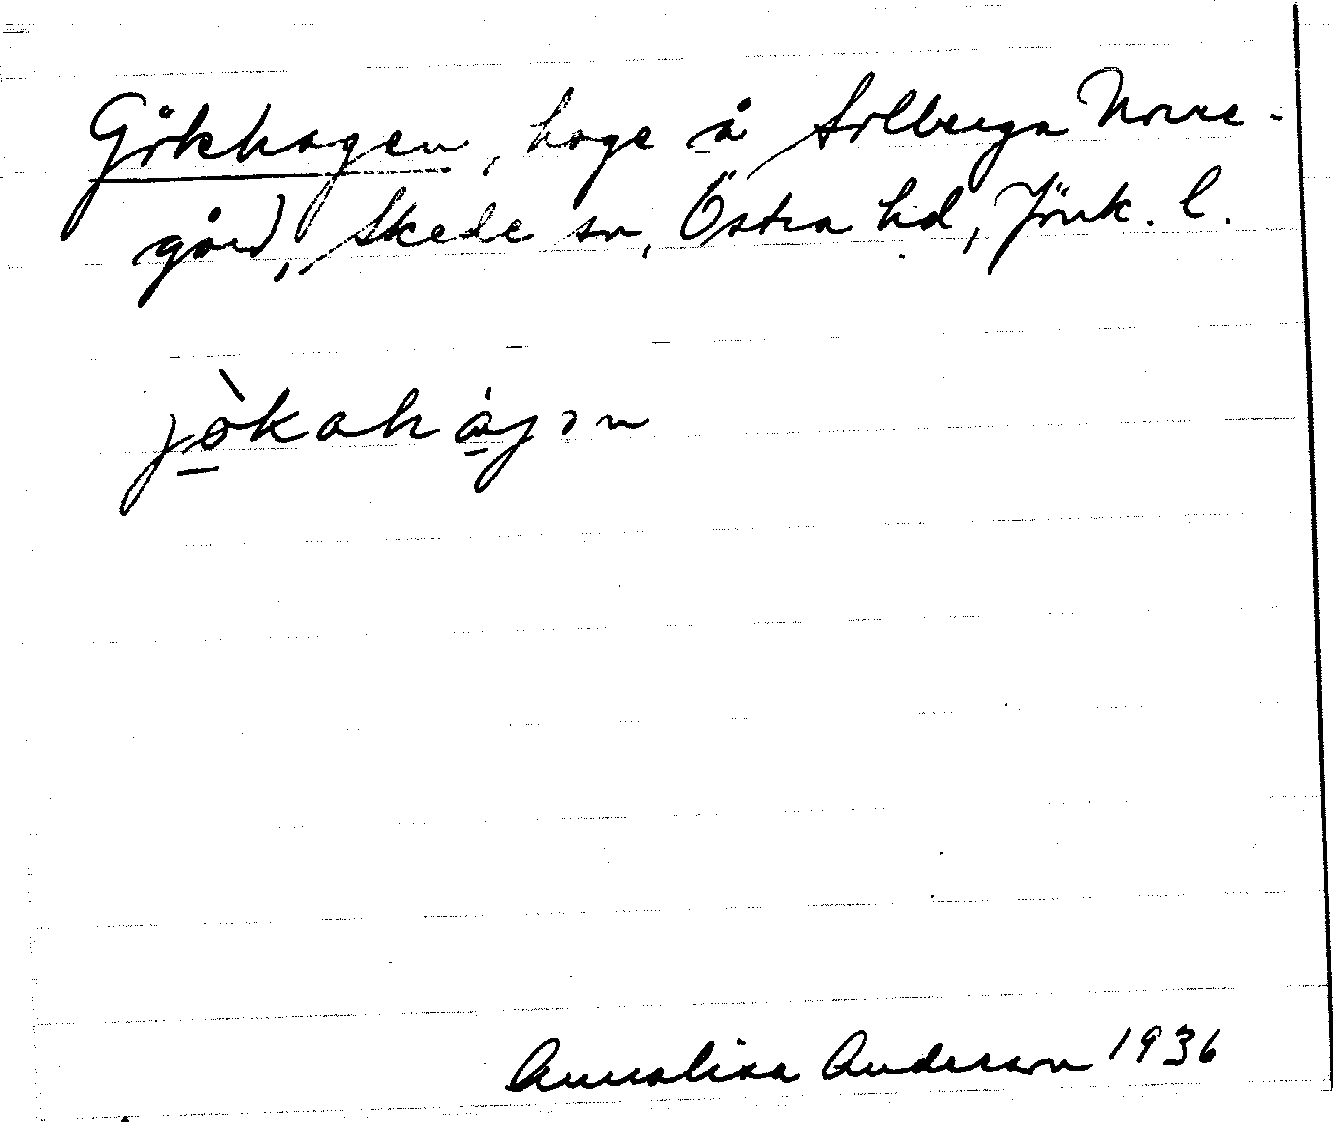 Gökhagen, hage å Solberga Norre-
gård, Skede sn, Östra hd, Jönk. l.
jòkahágən
Annalisa Anderson 1936